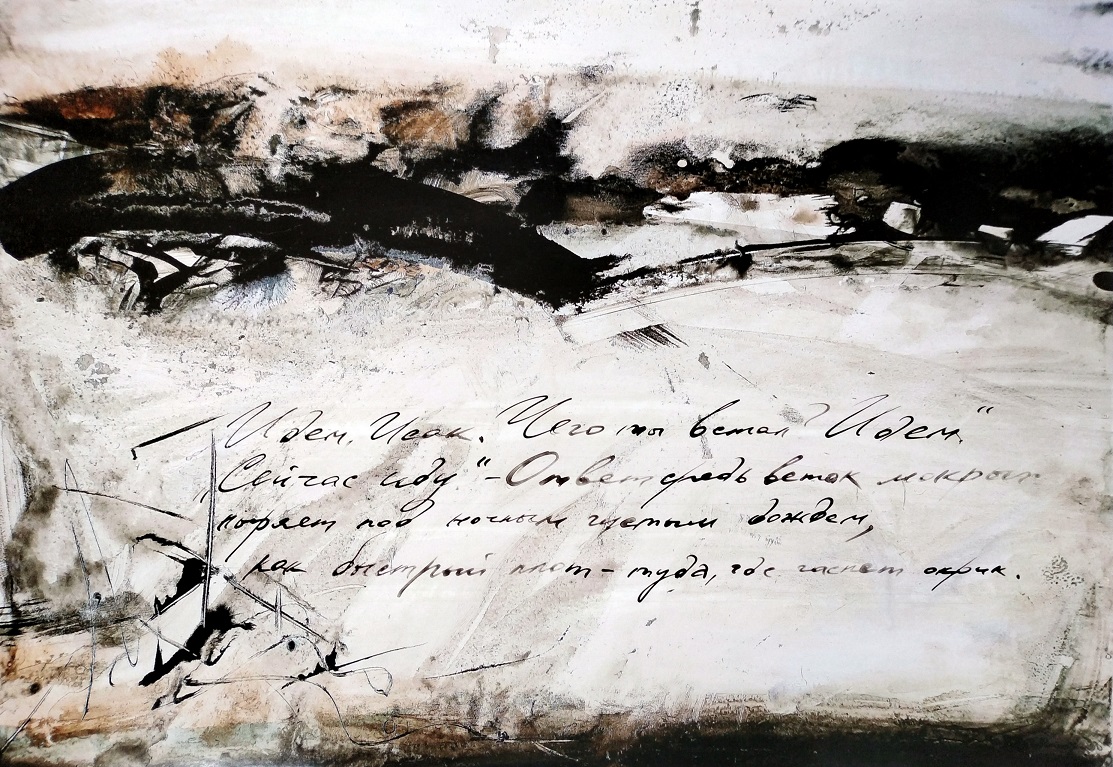 Идем, Исак. Чего ты встал? Идем."
„Сейчас иду". – Ответ средь веток мокрых
ныряет под ночным густым дождем,
как быстрый плот – туда, где гаснет окрик.